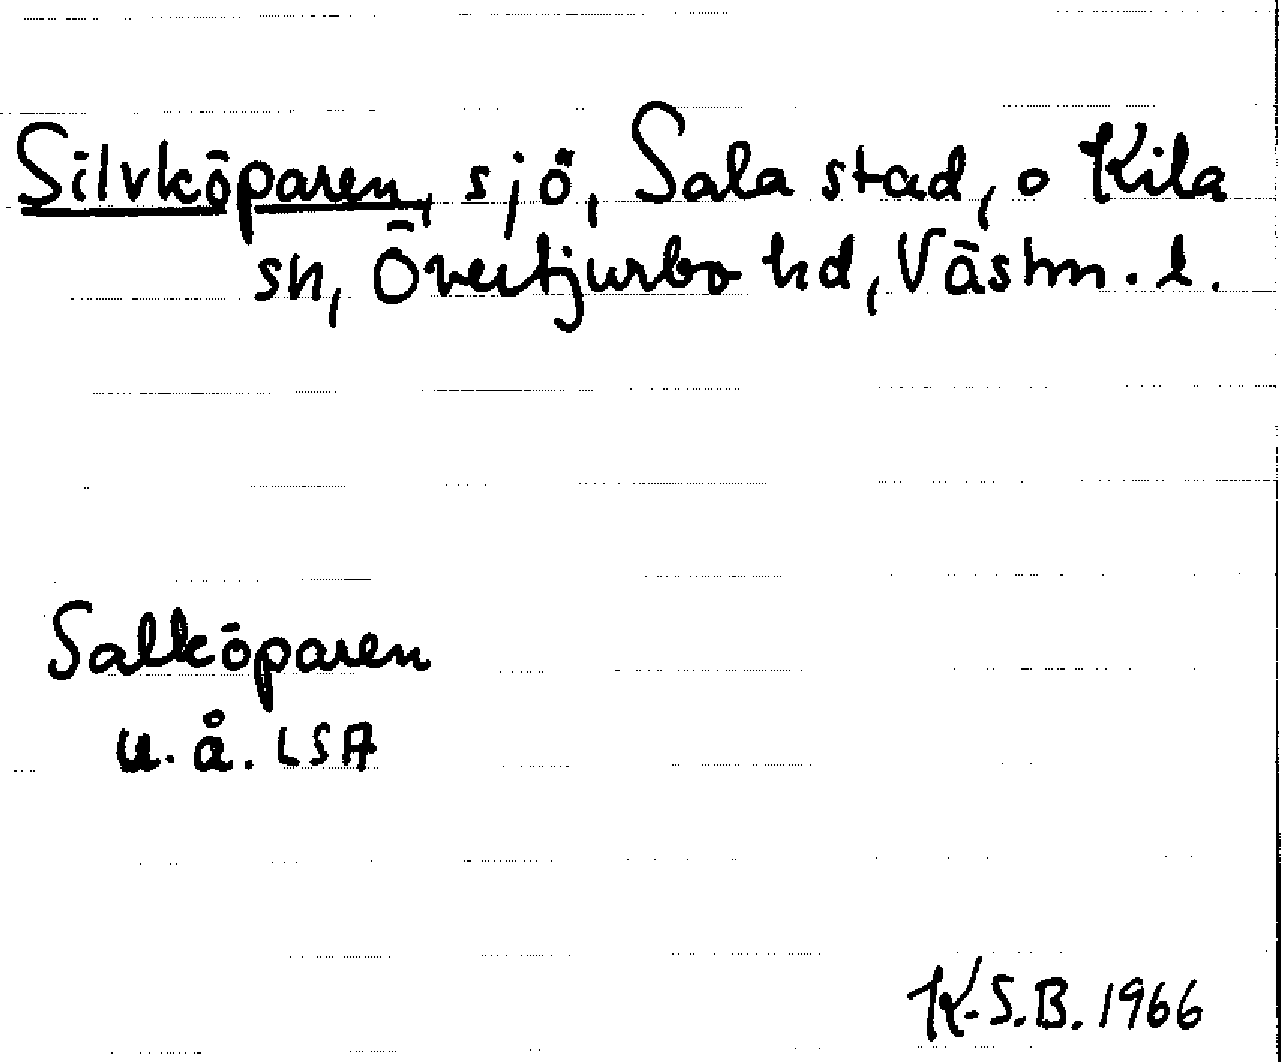 Silvköparen, sjö, Sala stad, o Kila
sn, Övertjurbo hd, Västm. l.
Salköparen
u. å. LSA
K.S.B. 1966